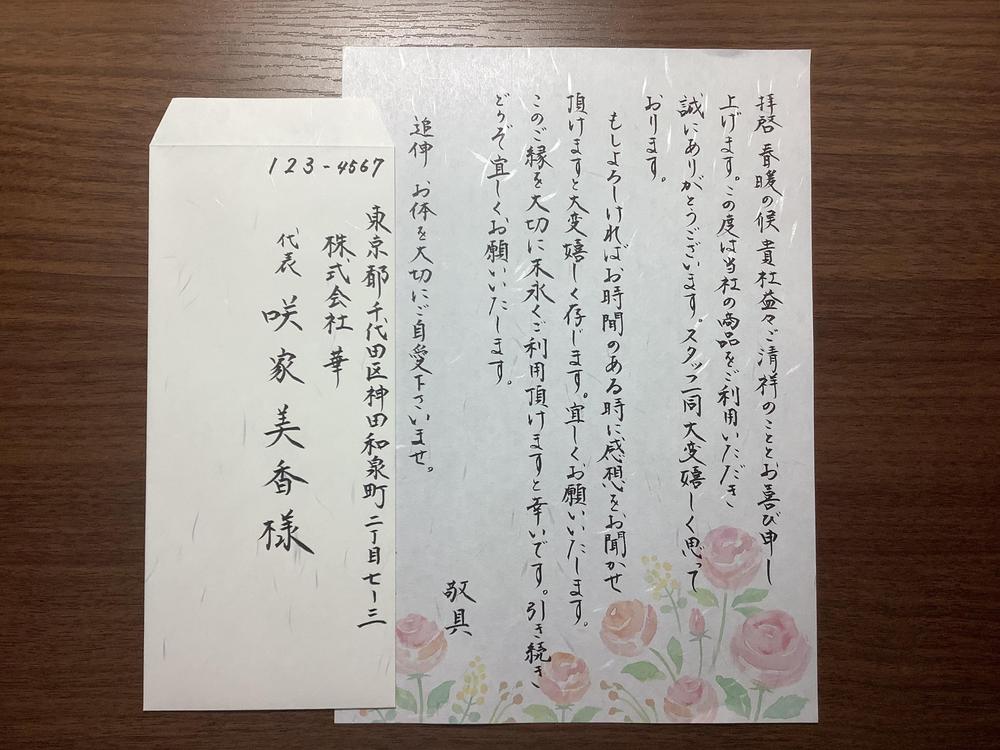 拝啓 春暖の候 貴社益々ご清祥のこととお喜び申し
上げます。この度は当社の商品をご利用いただき
誠にありがとうございます。スタッフ一同大変嬉しく思って
おります。
もしよろしければお時間のある時に感想をお聞かせ
頂けますと大変嬉しく存じます。宜しくお願いいたします。
このご縁を大切に末永くご利用頂けますと幸いです。引き続き
どうぞ宜しくお願いいたします。
敬具
追伸 お体を大切にご自愛下さいませ。
123-4567
東京都千代田区神田和泉町二丁目七ー三
株式会社 華
代表 咲家美香様